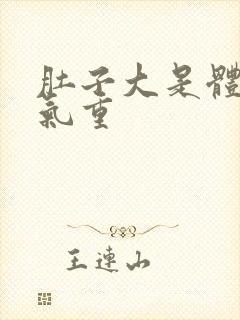 肚子大是體
氣重
王連山